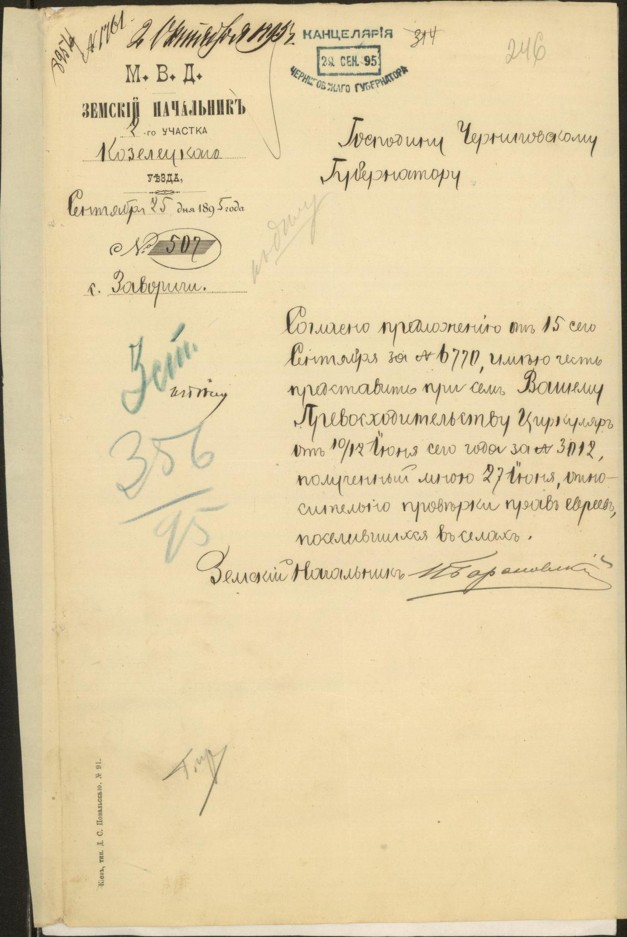 8954
№ 1761.
2 Октября 1895 г.
КАНЦЕЛЯРІЯ
28 СЕН. 95
ЧЕРНИГОВСКАГО ГУБЕРНАТОРА
314
246
М. В. Д.
ЗЕМСКІЙ НАЧАЛЬНИКЪ
2-го УЧАСТКА
Козелецкаго
УѢЗДА,
Сентября 25 дня 1895 года
№ 507
с. Заворичи.
Господину Черниговскому
Губернатору
Согласно предложенію отъ 15 сего
Сентября за № 6770, имѣю честь
представить при семъ Вашему
Превосходительству Циркуляръ
отъ 10/12 Іюня сего года за № 3012,
полученный мною 27 Іюня, отно-
сительно провѣрки правъ евреевъ,
поселившихся въ селахъ.
Земскій Начальникъ
3 ст.
356
95
Кіевъ, тип. Д. С. Повальскаго. № 91.